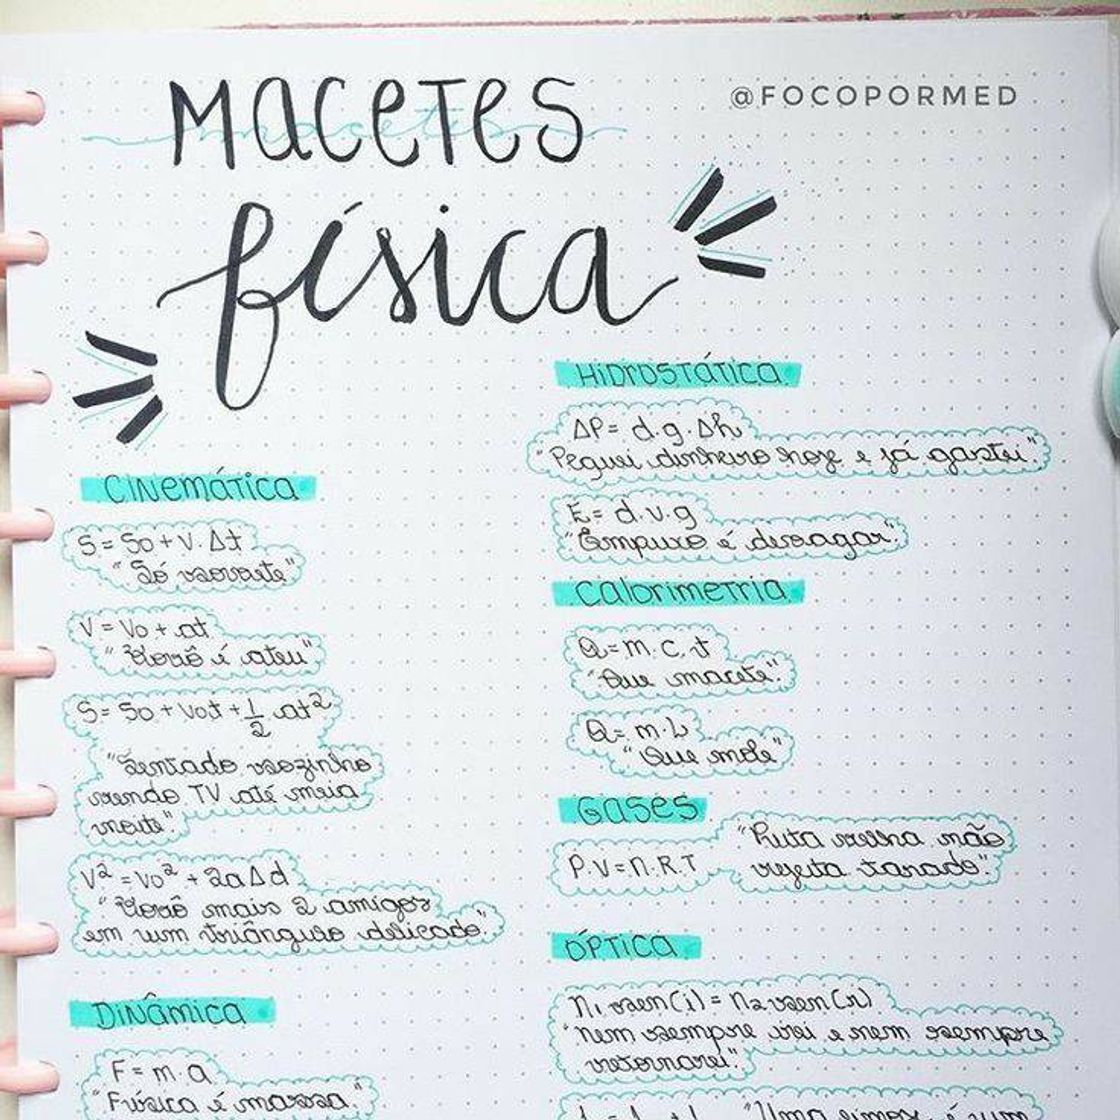 Macetes
@FOCOPORMED
física
Cinemática
S = So + V.Δt
"Só vovete"
V = Vo + at
"Vovô é ateu"
S = So + Vot + 1/2 at²
"Sentado sozinho
vendo TV até meia
noite".
V² = Vo² + 2aΔd
"Vovô mais 2 amigos
em um triângulo delicado".
Dinâmica
F = m.a
"Física é massa."
Hidrostática
ΔP = d.g.Δh
"Peguei dinheiro hoje e já gastei".
E = d.v.g
"Empuxo é devagar".
Calorimetria
Q = m.c.t
"Que macete".
Q = m.L
"Que mole"
Gases
P.V = n.R.T
"Puta velha não
rejeita tarado".
Óptica
n₁ sen(i) = n₂ sen(r)
"nem sempre irei e nem sempre
retornarei".